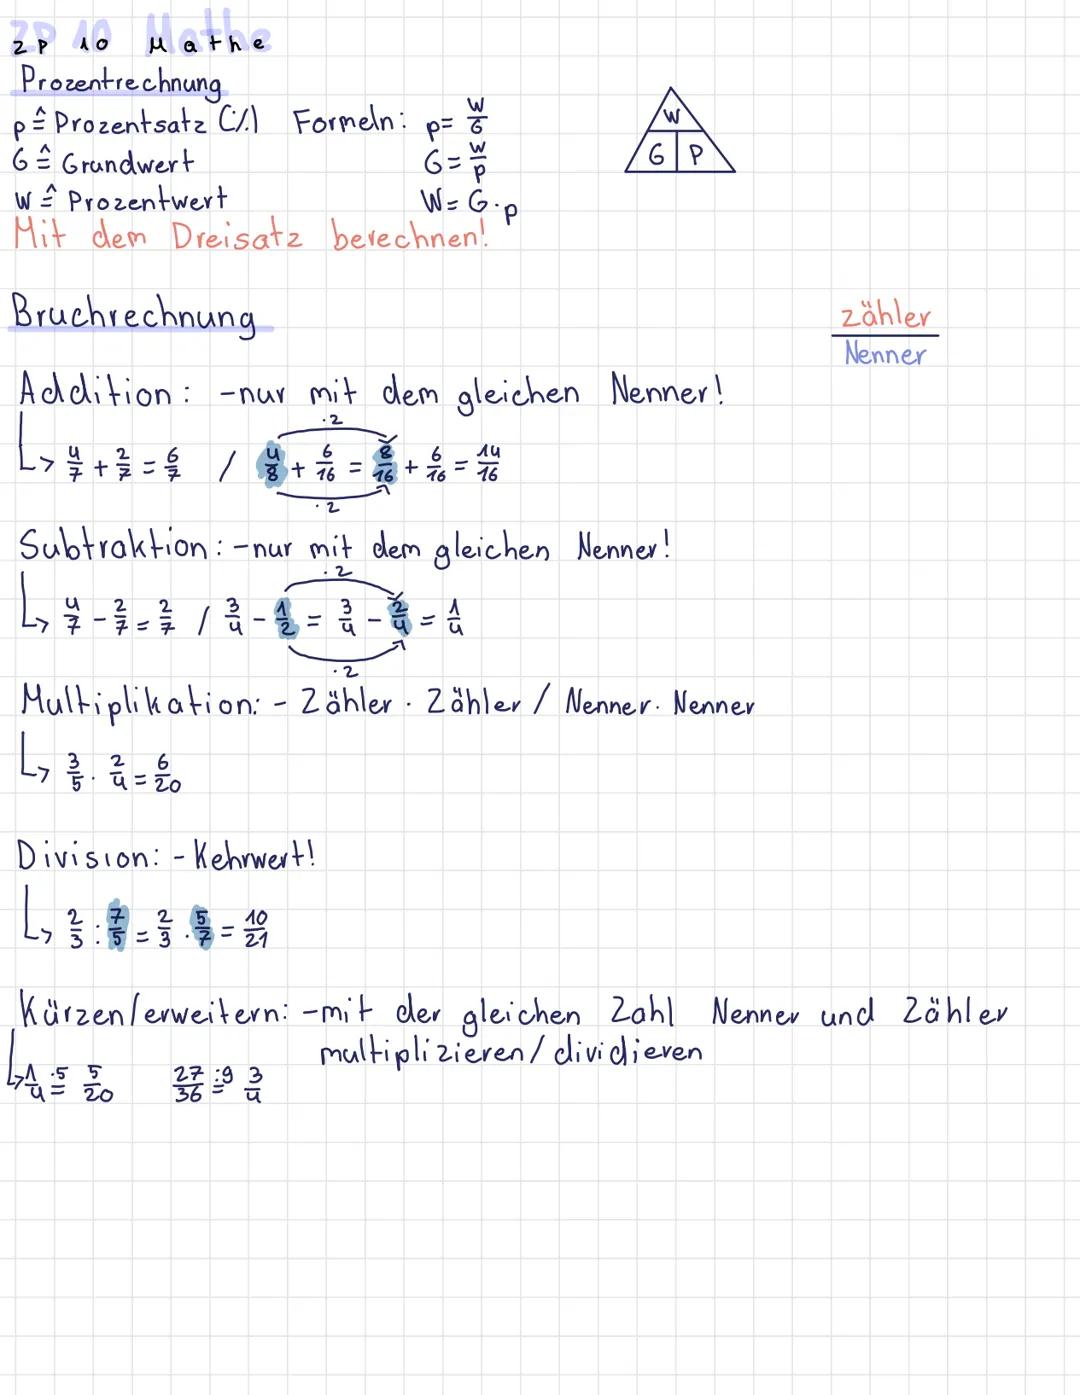 ZP 10 Mathe
ZP 10 Mathe
Prozentrechnung
p ≙ Prozentsatz (%) Formeln: p = W/G
G ≙ Grundwert G = W/p
W ≙ Prozentwert W = G · p
W
G P
Mit dem Dreisatz berechnen!
Bruchrechnung
Zähler
Nenner
Addition: -nur mit dem gleichen Nenner!
·2
↳ 4/7 + 2/7 = 6/7 / 4/8 + 6/16 = 8/16 + 6/16 = 14/16
·2
Subtraktion: -nur mit dem gleichen Nenner!
·2
↳ 4/7 - 2/7 = 2/7 / 3/4 - 1/2 = 3/4 - 2/4 = 1/4
·2
Multiplikation: - Zähler · Zähler / Nenner · Nenner
↳ 3/5 · 2/4 = 6/20
Division: - Kehrwert!
↳ 2/3 : 7/5 = 2/3 · 5/7 = 10/21
Kürzen/erweitern: -mit der gleichen Zahl Nenner und Zähler
multiplizieren/dividieren
↳ 1/4 ·5= 5/20 27/36 :9= 3/4